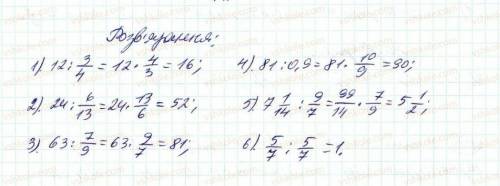 Розв'язання:
1). 12 : 3/4 = 12 · 4/3 = 16;
2). 24 : 6/13 = 24 · 13/6 = 52;
3). 63 : 7/9 = 63 · 9/7 = 81;
4). 81 : 0,9 = 81 · 10/9 = 90;
5). 7 1/14 : 9/7 = 99/14 · 7/9 = 5 1/2;
6). 5/7 : 5/7 = 1.